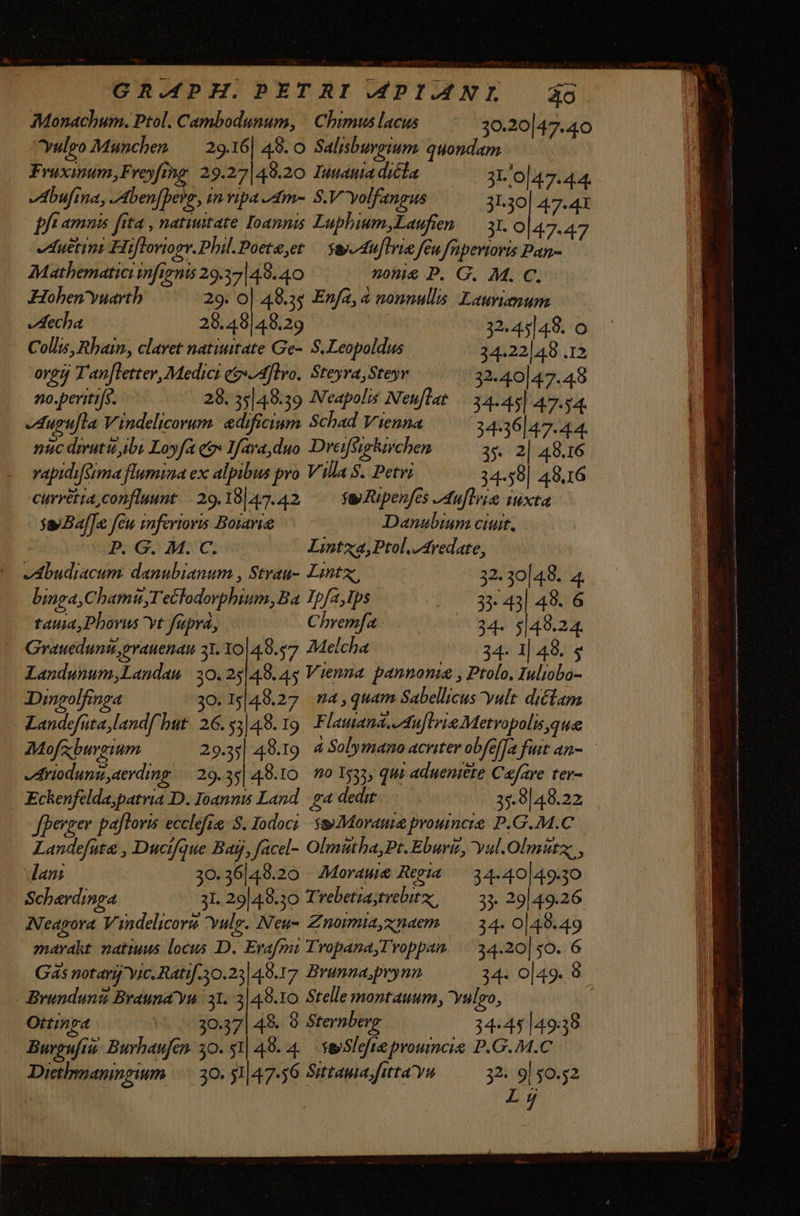 GRAPH. PETRI APIANI. 40
Monachum. Ptol. Cambodunum,
vulgo Munchen 29.16| 48. 0
Fruxinum, Freysing 29.27|48.20
Abusina, Abensperg, in ripa Am-
psi amnis sita, natiuitate Ioannis
Auetini Historiogr. Phil. Poetæ, et
Mathematici insignis 29.37|48.40
Hohenvuarth 29. 0| 48.35
Aecha 28.48|48.29
Collis, Rhain, claret natiuitate Ge-
orgij Tanstetter, Medici & Astro.
no. peritiss. 28. 35|48.39
Augusta Vindelicorum ædificium
nūc dirutū, ibi Loysa & Isara, duo
rapidissima flumina ex alpibus pro
currētia, confluunt 29.18|47.42
Bassæ seu inferioris Boiariæ
P. G. M. C.
Abudiacum danubianum, Strau-
binga, Chamū, Teclodorphium, Ba
tauia, Phorus vt suprà,
Grauedunū, grauenau 31. 10|48.57
Landunum, Landau 30. 25|48.45
Dingolfinga 30. 15|48.27
Landesuta, landshut 26.53|48. 19
Mosxburgium 29.35| 48.19
Ariodunū, aerding 29. 35| 48.10
Eckenfelda, patria D. Ioannis Land
sperger pastoris ecclesiæ S. Iodoci
Landesutæ, Ducisque Baij, facel-
lani 30.36|48.20
Scherdinga 31. 29|48.30
Neagora Vindelicorū vulg. Neu-
marakt natiuus locus D. Erasmi
Gas notarij vic. Ratis. 30.23|48.17
Brundunū Braunavu 31. 3|48.10
Ottinga 30.37| 48. 8
Burgusiū Burhausen 30. 51| 48. 4
Diethmaningium 30. 51|47.56
Chimus lacus 30.20|47.40
Salisburgium quondam
Iuuauia dicta 31. 0|47.44
S.V volfangus 31.30| 47.41
Luphium, Laufien 31. 0|47.47
Austriæ seu superioris Pan-
noniæ P. G. M. C.
Ensa, à nonnullis Laurianum
32.45|48. 0
S. Leopoldus 34.22|48 .12
Steyra, Steyr 32.40|47.48
Neapolis Neustat 34.45| 47.54
Schad Vienna 34.36|47.44
Dreissigkirchen 35. 2| 48.16
Villa S. Petri 34.58| 48,16
Ripenses Austriæ iuxta
Danubium ciuit.
Lintxa, Ptol. Aredate,
Lintx, 32.30|48. 4
Ipsa, Ips 33. 43| 48. 6
Chremsa 34. 5|48.24
Melcha 34. 1| 48. 5
Vienna pannoniæ, Ptolo. Iuliobo-
na, quam Sabellicus vult dictam
Flauianā. Austriæ Metropolis, quæ
à Solymano acriter obsessa fuit an-
no 1533, qui adueniēte Cæsare ter-
ga dedit 35.8|48.22
Morauiæ prouinciæ P.G.M.C
Olmūtha, Pr. Eburū, vul. Olmūtx,
Morauiæ Regia 34.40|49.30
Trebetia, trebitx, 33. 29|49.26
Znoimia, xnaem 34. 0|48.49
Tropana, Troppan 34.20|50. 6
Brunna, prynn 34. 0|49. 8
Stelle montauum, vulgo,
Sternberg 34.45 |49.38
Slesiæ prouinciæ P.G.M.C
Sittauia, sittavu 32. 9| 50.52
L ij